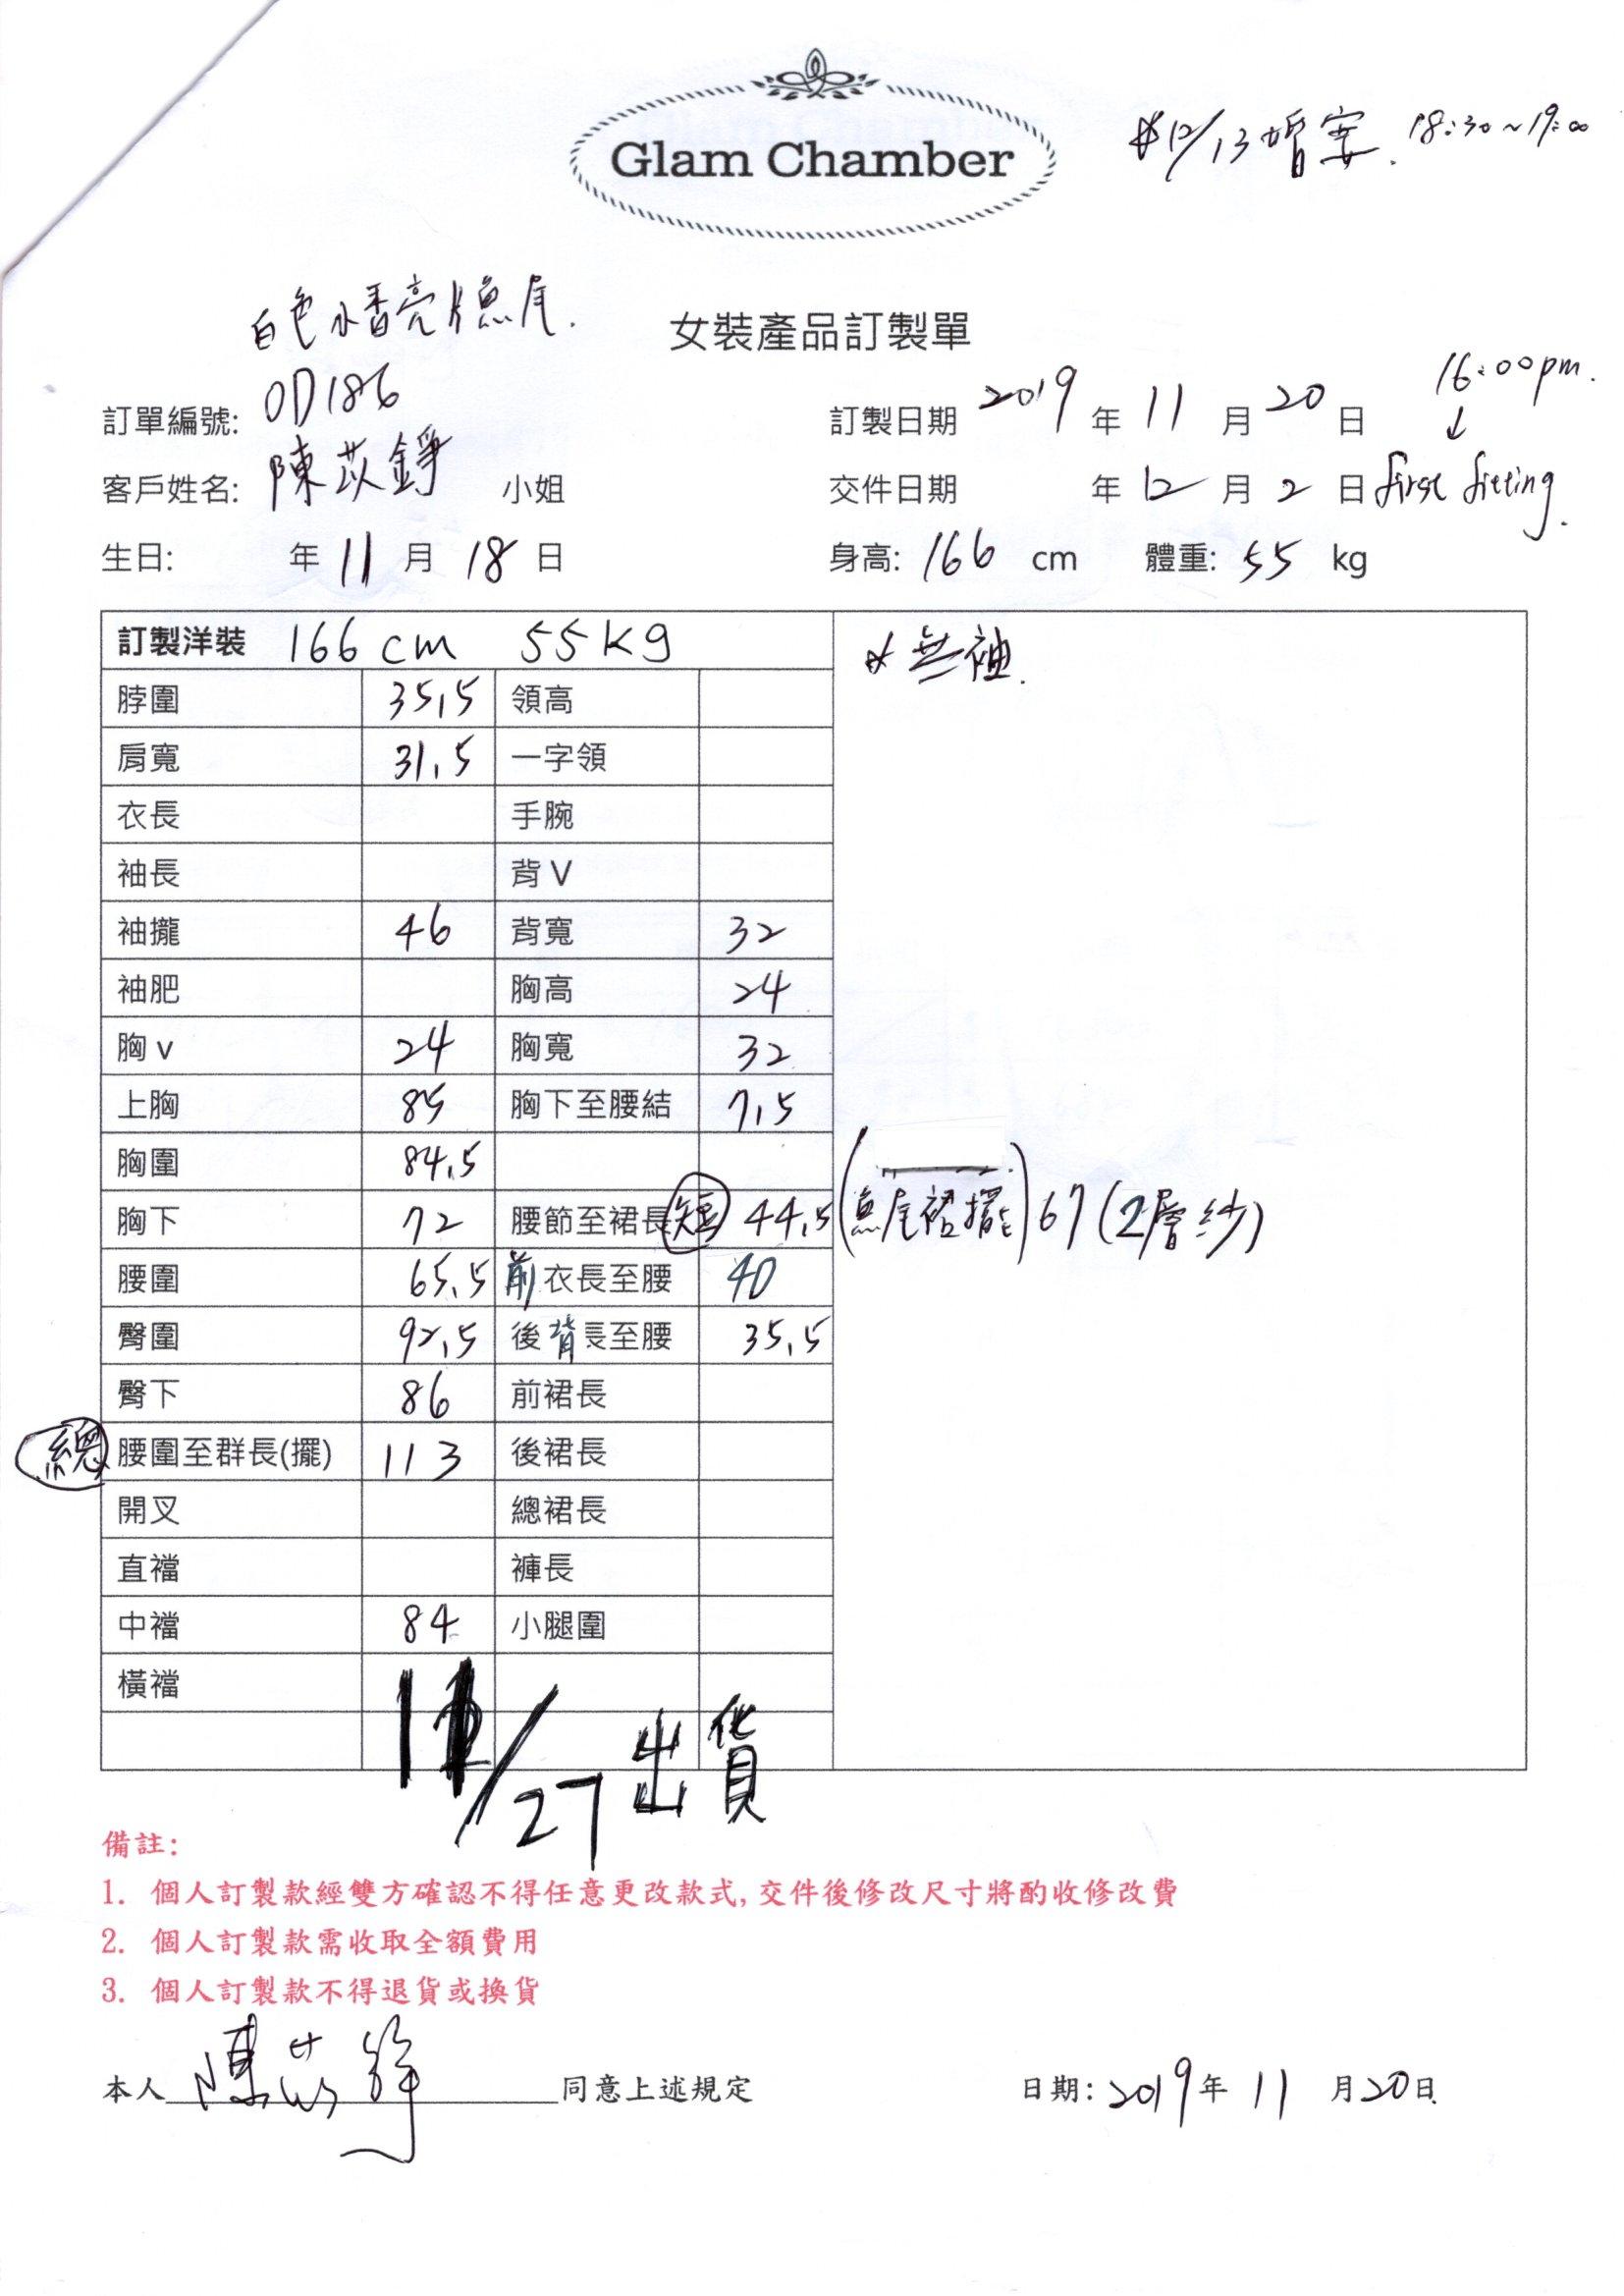 Glam Chamber
12/13婚宴. 18:30~19:00
白色水香亮片魚尾.
女裝產品訂製單
16:00pm.
訂單編號: OD186
訂製日期 2019 年 11 月 20 日
客戶姓名: 陳苡錚 小姐
交件日期 年 12 月 2 日 first fitting.
生日: 年 11 月 18 日
身高: 166 cm 體重: 55 kg
訂製洋裝 166cm 55kg
無袖.
脖圍 35.5 領高
肩寬 31.5 一字領
衣長 手腕
袖長 背V
袖攏 46 背寬 32
袖肥 胸高 24
胸v 24 胸寬 32
上胸 85 胸下至腰結 7.5
胸圍 84.5
胸下 72 腰節至裙長 短 44.5 (魚尾裙擺) 67 (2層紗)
腰圍 65.5 前衣長至腰 40
臀圍 92.5 後背長至腰 35.5
臀下 86 前裙長
總 腰圍至群長(擺) 113 後裙長
開叉 總裙長
直襠 褲長
中襠 84 小腿圍
橫襠
11/27出貨
備註:
1. 個人訂製款經雙方確認不得任意更改款式, 交件後修改尺寸將酌收修改費
2. 個人訂製款需收取全額費用
3. 個人訂製款不得退貨或換貨
本人 陳苡錚 同意上述規定
日期: 2019年 11 月20日